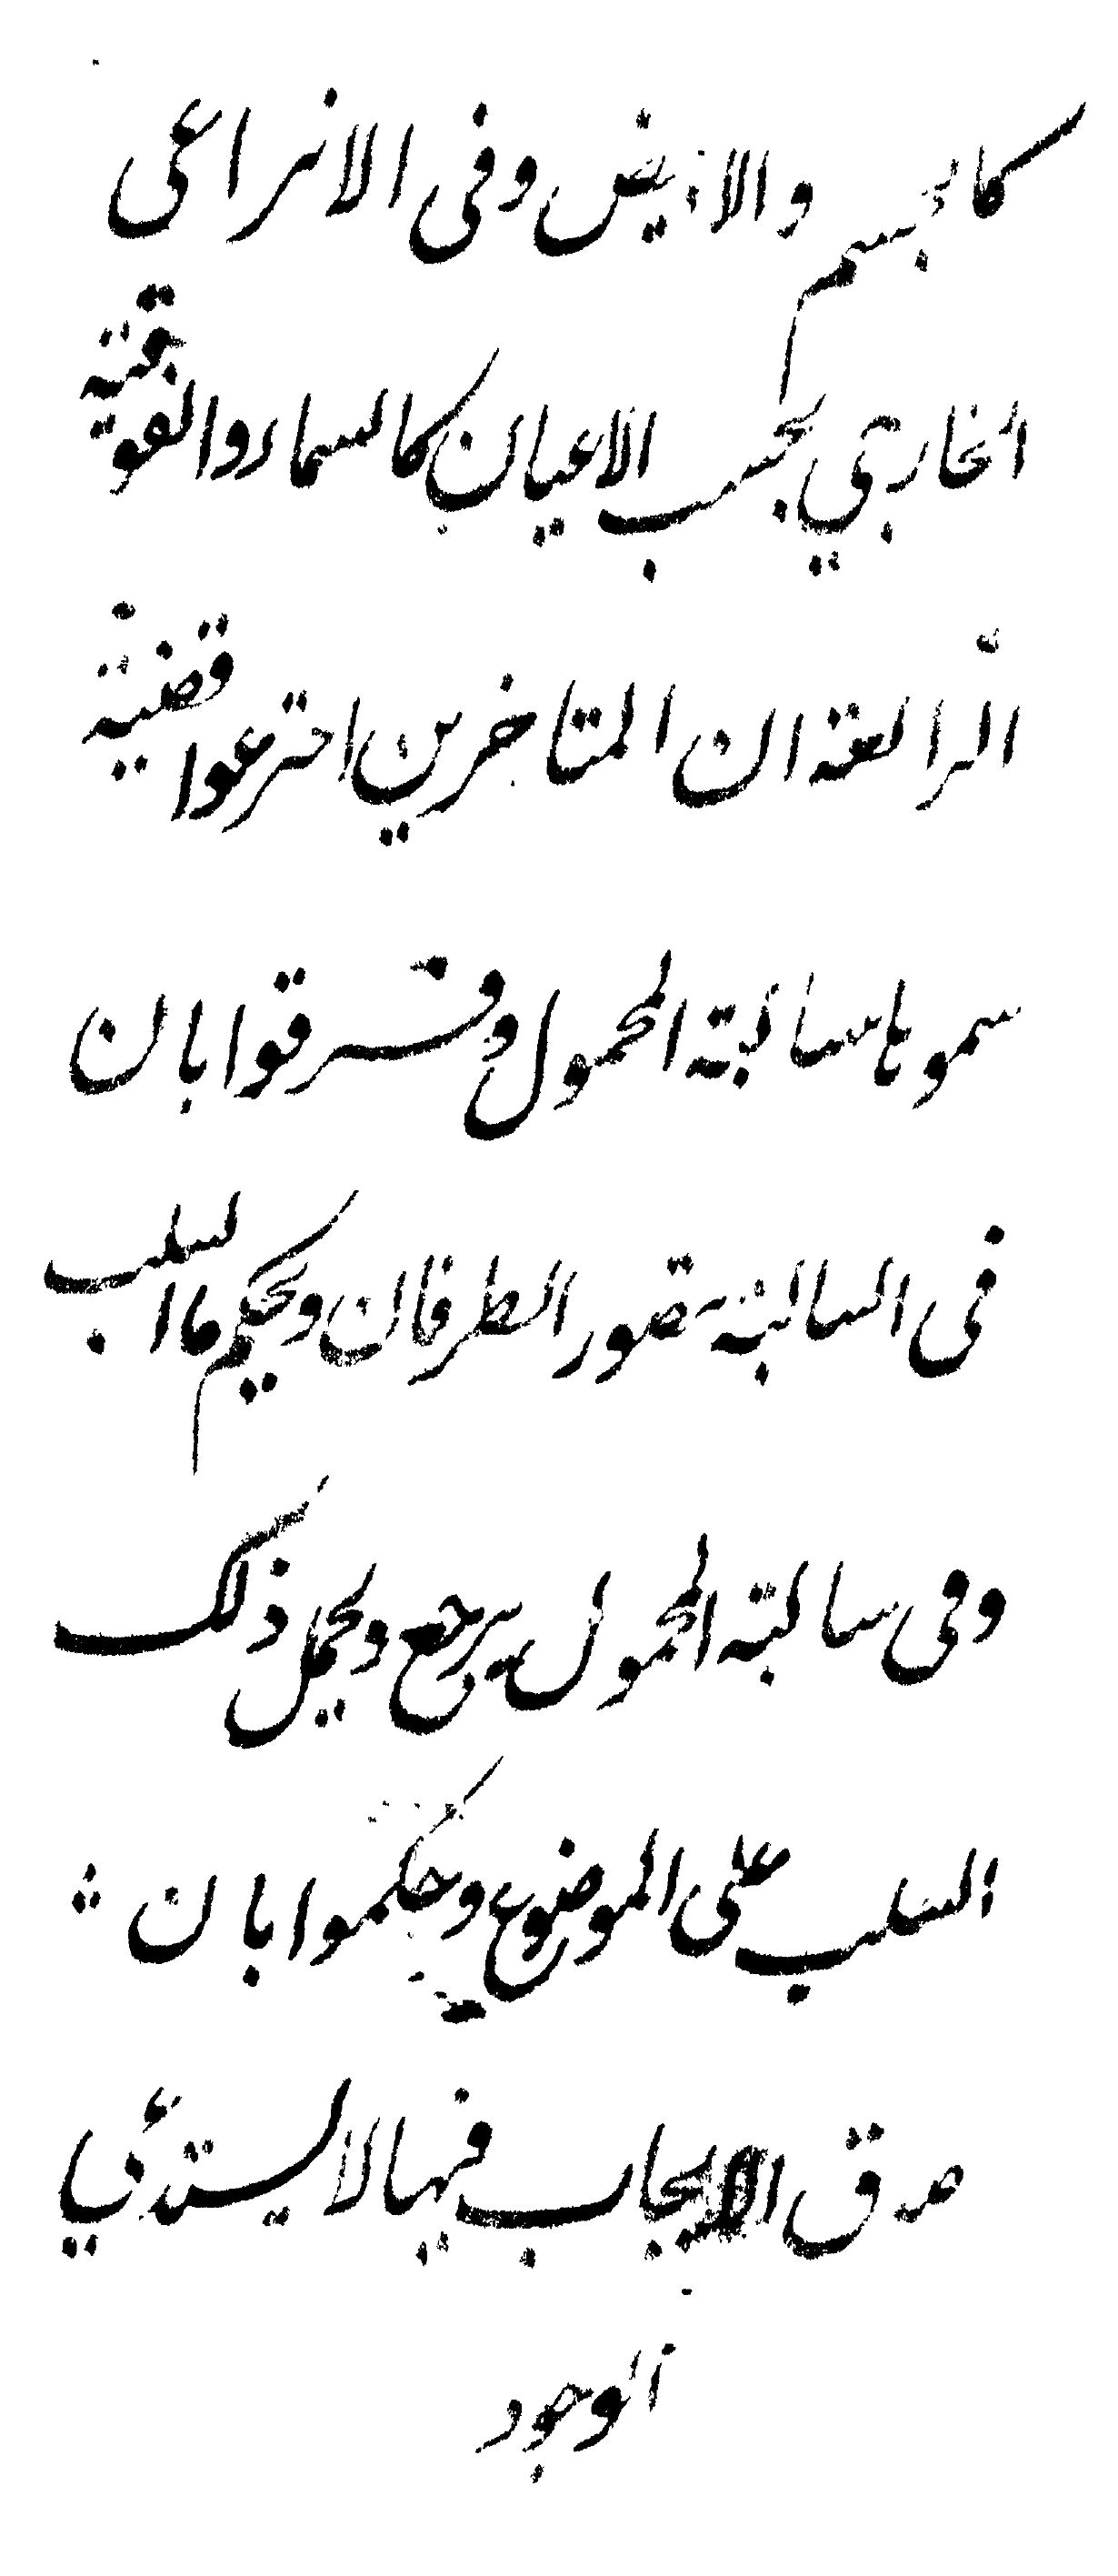 كالجسم والابيض وفى الانتزاعى
الخارجي بحسب الاعيان كالسماء والفوقية
الرابعة ان المتاخرين اخترعوا قضية
سموها سالبة المحمول وفرقوا بان
فى السالبة تتصور الطرفان ويحكم بالسلب
وفى سالبة المحمول يرجع ويحمل ذلك
السلب على الموضوع وحكموا بان
صدق الايجاب فيها لا يستدعي
الوجود